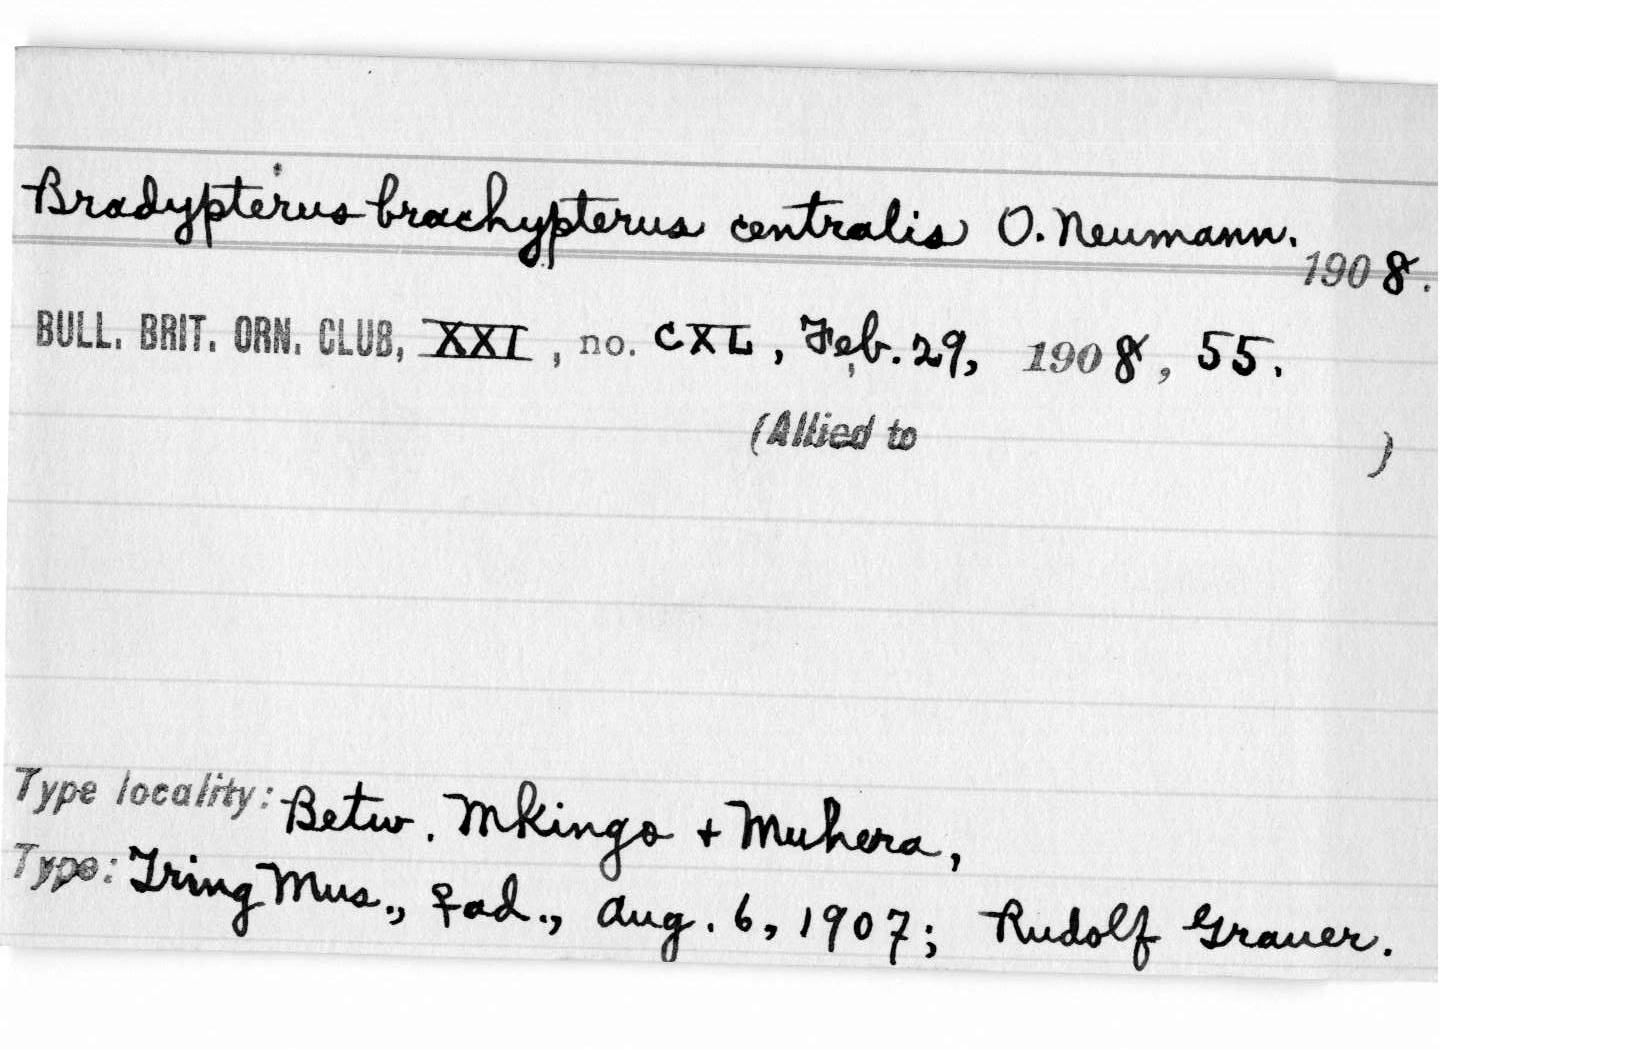 Bradypterus brachypterus centralis O. Neumann.
1908.
BULL. BRIT. ORN. CLUB, XXI, no. CXL, Feb. 29, 1908, 55.
(Allied to )
Type locality: Betw. Mkingo + Muhera,
Type: Tring Mus., ♀ad., Aug. 6, 1907; Rudolf Grauer.